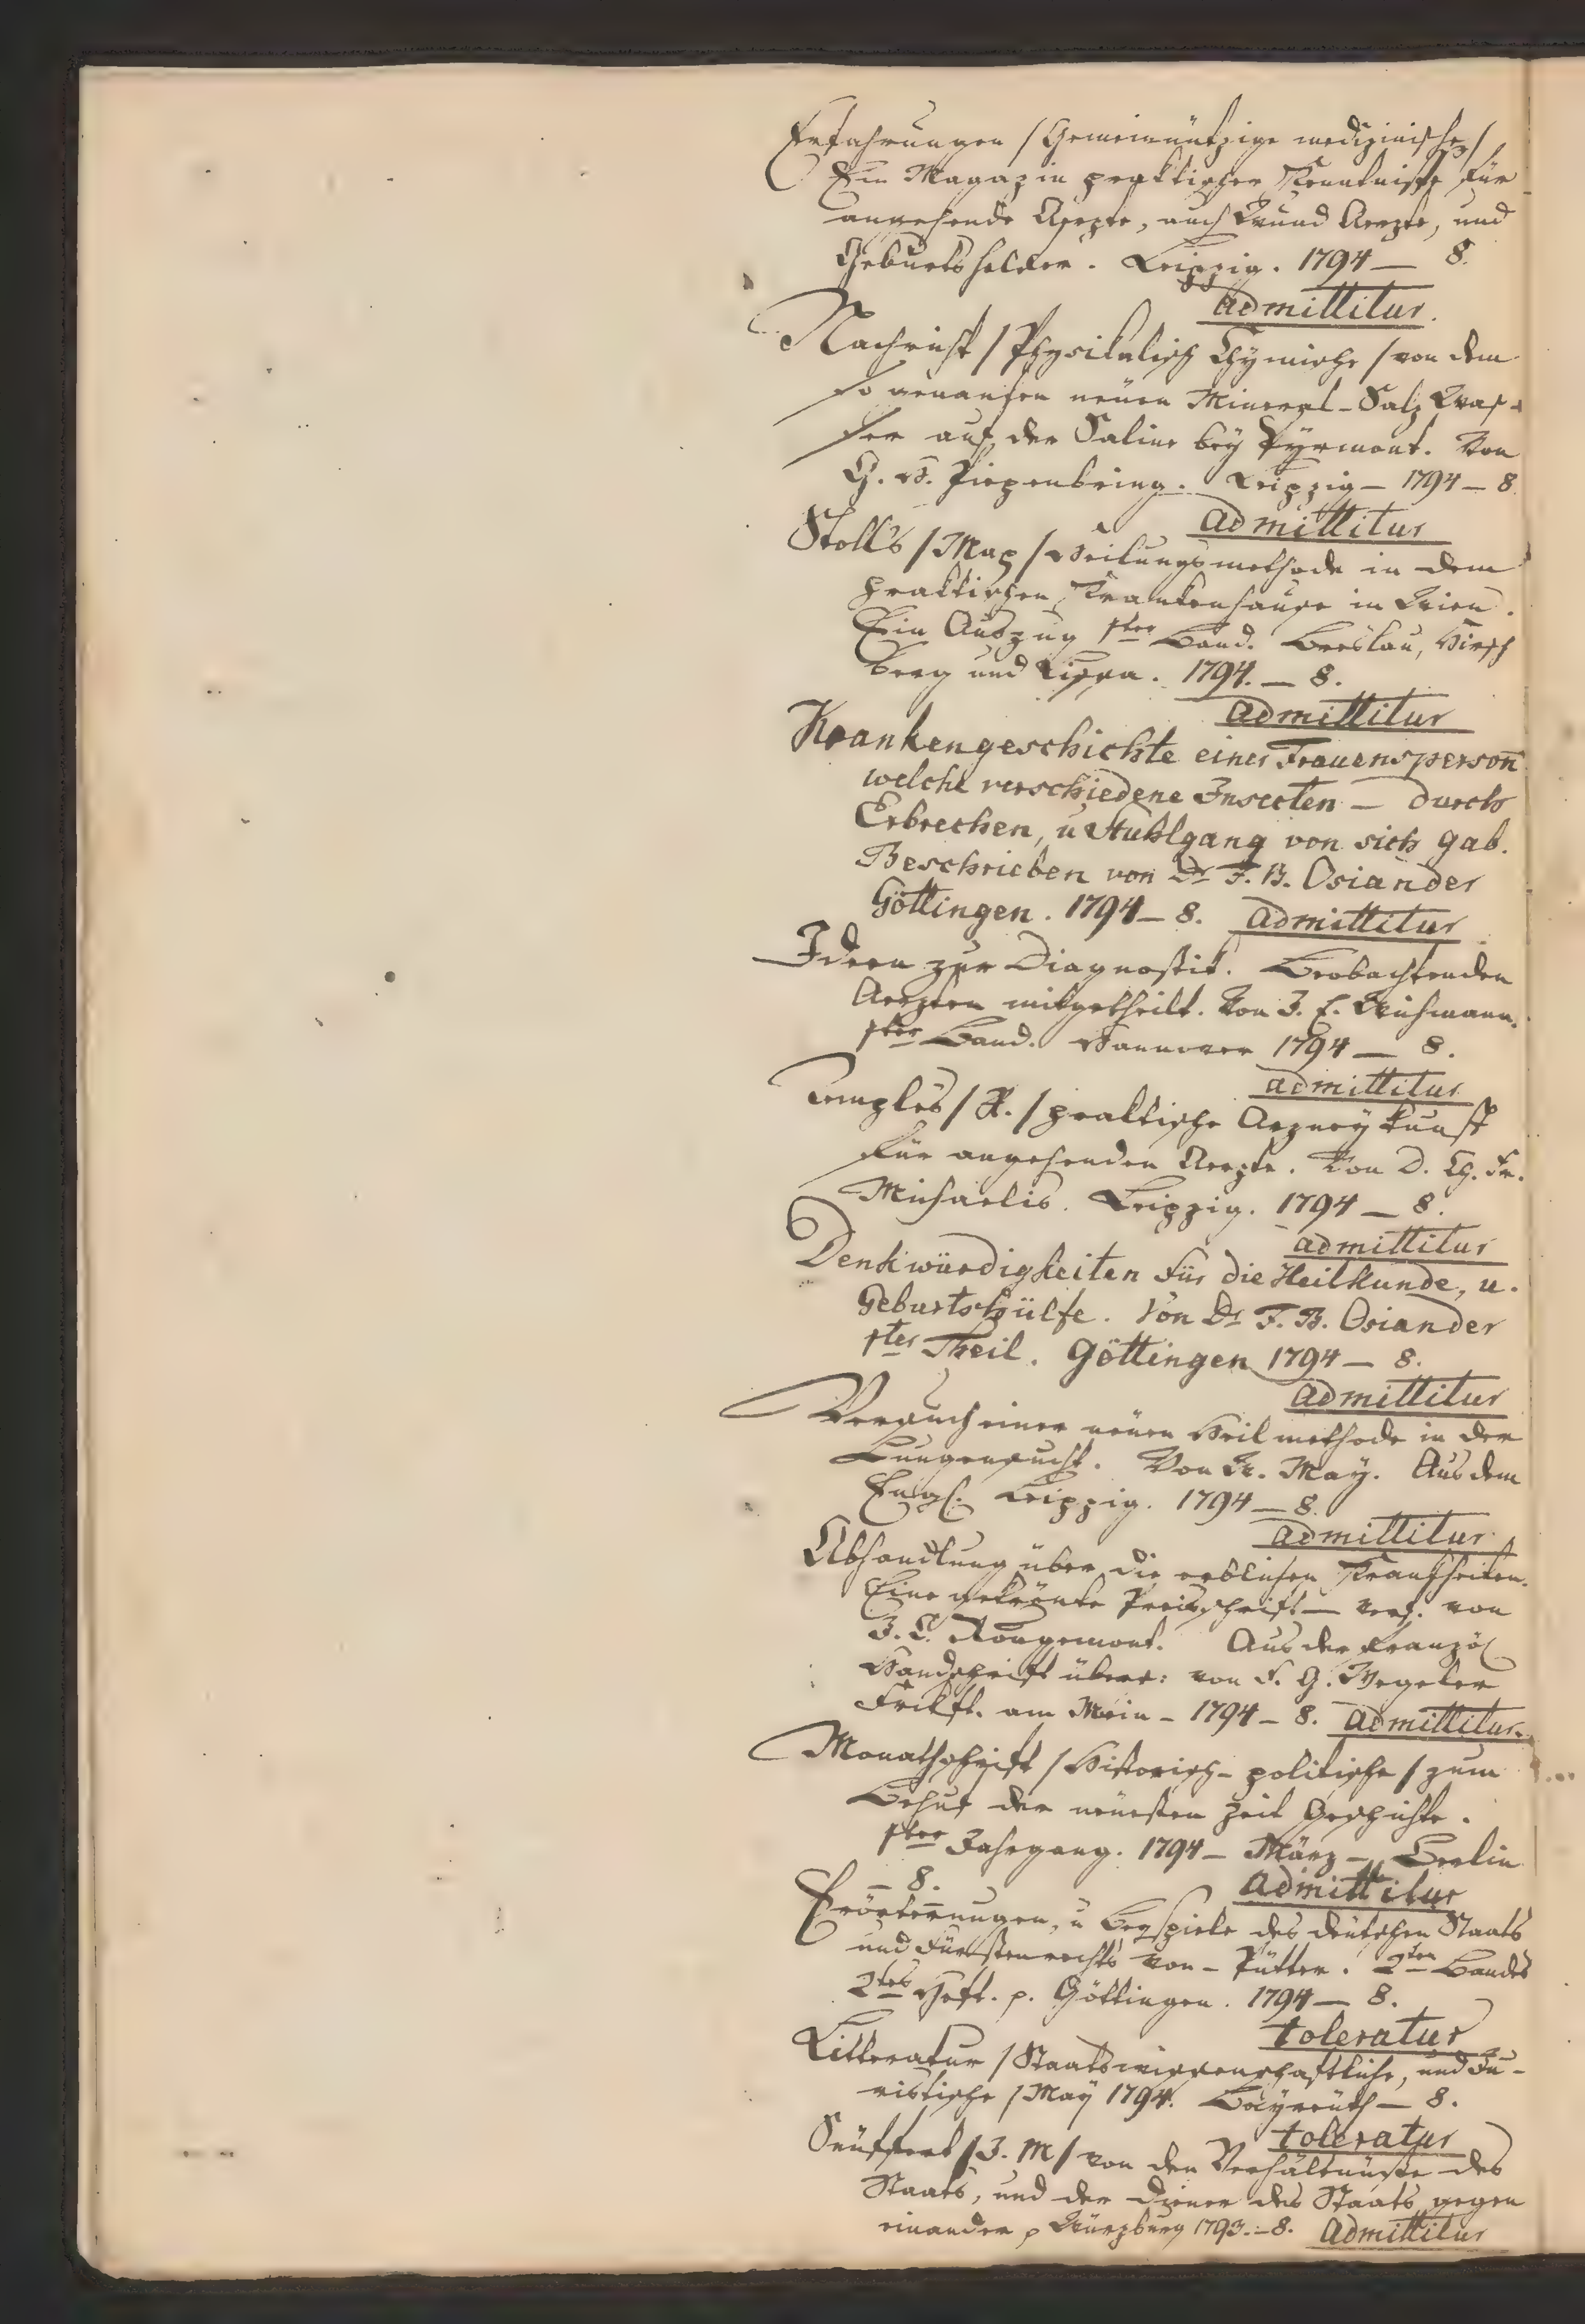 Erfahrungen /Gemeinnützige medizinische/
Ein Magazin praktischer Kenntnisse für
angehende Aerzte, auch Wund Aerzte, und
Geburtshelfer. Leipzig. 1794 — 8.
admittitur.
Nachricht /Physikalisch Chymische/ von dem
so genanten neüen Mineral-Salz Was-
ser auf der Saline beÿ Pÿrmont. Von
G. H. Piepenbring. Leipzig — 1794 — 8.
admittitur
Stolls /Max/ Heilungsmethode in dem
praktischen Krankenhause in Wien.
Ein Auszug 1ter Band. Breslau, Hirsch
berg und Lissa. 1794. — 8.
admittitur
Krankengeschichte einer Frauensperson
welche verschiedene Insecten — durch
Erbrechen, u Stuhlgang von sich gab.
Beschrieben von Dr F. B. Osiander
Göttingen. 1794 — 8. admittitur
Ideen zur Diagnostik. Beobachtenden
Aerzten mitgetheilt. Von J. E. Wichmann.
1ter Band. Hannover 1794 — 8.
admittitur
Temples /R./ praktische Arzneÿkunst
für angehenden Aerzte. Von D. Ch. Fr.
Michaelis. Leipzig. 1794 — 8.
admittitur
Denkwürdigkeiten für die Heilkunde, u.
Geburtshülfe. Von Dr F. B. Osiander
1ter Theil. Göttingen 1794 — 8.
admittitur
Versuch einer neüen Heilmethode in der
Lungensucht. Von W. Maÿ. Aus dem
Engl. Leipzig. 1794 — 8.
admittitur
Abhandlung über die erblichen Krankheiten.
Eine gekrönte Preisschrift — verf. von
J. C. Rougemont. Aus der Französ
Handschrift übers: von F. G. Wegeler
Frkft. am Main — 1794 — 8. admittitur.
Monathschrift /Historisch-politische/ zum
Behuf der neüesten Zeit Geschichte.
1ter Jahrgang. 1794 — März — Berlin
— 8. admittitur
Erörterungen, u Beÿspiele des deütschen Staats
und Fürstenrechts von — Pütter. 2ten Bandes
2tes Heft. p. Göttingen. 1794 — 8.
toleratur
Litteratur /Staatswissenschaftliche, und Ju-
ristische/ Maÿ 1794. Baÿreüth — 8.
toleratur
Seüffert /J. M/ von dem Verhältnüsse des
Staats, und der Diener des Staats gegen
einander p Würzburg 1793. — 8. admittitur